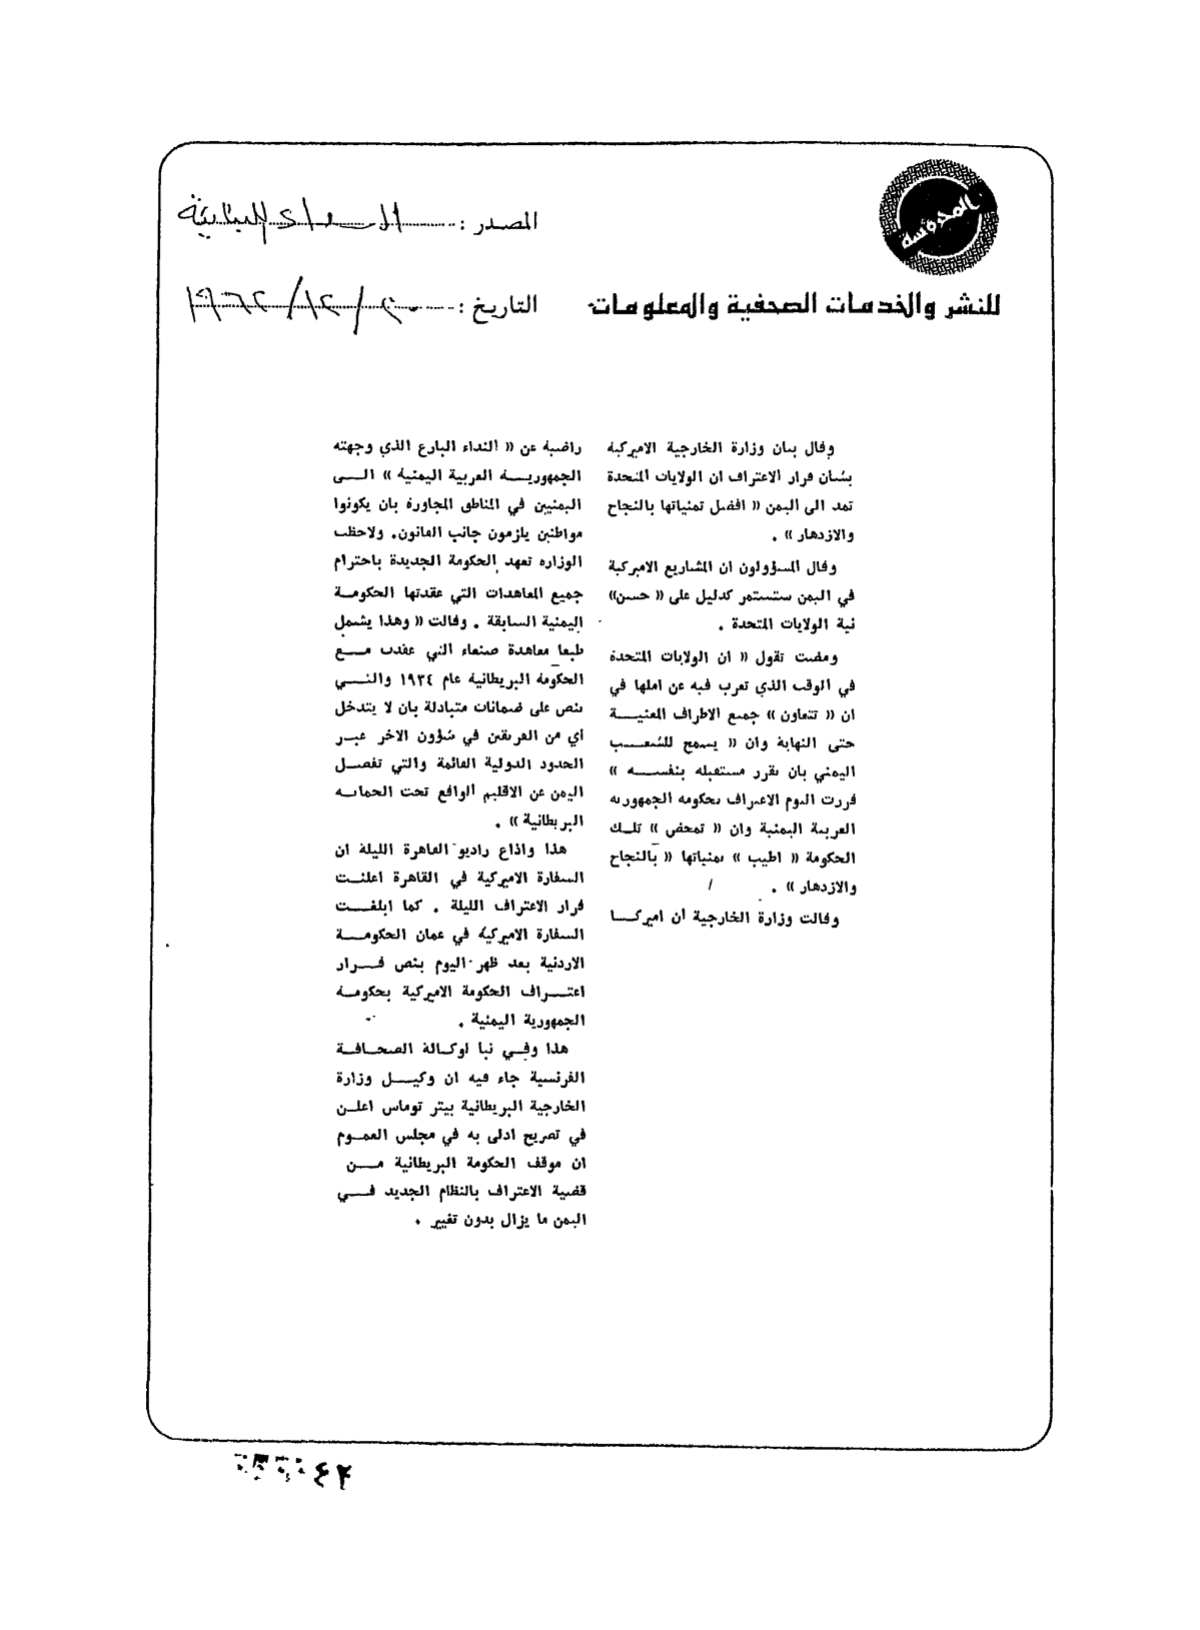 المحروسة
للنشر والخدمات الصحفية والمعلومات
المصدر :
التاريخ : ٢٠/١٢/١٩٦٢
وقال بيان وزارة الخارجية الاميركية
بشأن قرار الاعتراف ان الولايات المتحدة
تمد الى اليمن « افضل تمنياتها بالنجاح
والازدهار » .
وقال المسؤولون ان المشاريع الاميركية
في اليمن ستستمر كدليل على « حسن»
نية الولايات المتحدة .
ومضت تقول « ان الولايات المتحدة
في الوقت الذي تعرب فيه عن املها في
ان « تتعاون » جميع الاطراف المعنيـــة
حتى النهاية وان « يسمح للشعـــب
اليمني بان يقرر مستقبله بنفســـه »
قررت اليوم الاعتراف بحكومة الجمهورية
العربية اليمنية وان « تمحض » تلــك
الحكومة « اطيب » تمنياتها « بالنجاح
والازدهار » .
وقالت وزارة الخارجية أن اميركـــا
راضية عن « النداء البارع الذي وجهته
الجمهوريـــة العربية اليمنية » الـــى
اليمنيين في المناطق المجاورة بان يكونوا
مواطنين يلزمون جانب القانون. ولاحظت
الوزارة تعهد الحكومة الجديدة باحترام
جميع المعاهدات التي عقدتها الحكومــة
اليمنية السابقة . وقالت « وهذا يشمل
طبعا معاهدة صنعاء التي عقدت مـــع
الحكومة البريطانية عام ١٩٣٤ والتـــي
تنص على ضمانات متبادلة بان لا يتدخل
أي من الفريقين في شؤون الاخر عبــر
الحدود الدولية القائمة والتي تفصــل
اليمن عن الاقليم الواقع تحت الحمايــه
البريطانية » .
هذا واذاع راديو القاهرة الليلة ان
السفارة الاميركية في القاهرة اعلنــت
قرار الاعتراف الليلة . كما ابلغـــت
السفارة الاميركية في عمان الحكومـــة
الاردنية بعد ظهر اليوم بنص قـــرار
اعتـــراف الحكومة الاميركية بحكومــة
الجمهورية اليمنية .
هذا وفــي نبا لوكــالة الصحــافــة
الفرنسية جاء فيه ان وكيـــل وزارة
الخارجية البريطانية بيتر توماس اعلــن
في تصريح ادلى به في مجلس العمــوم
ان موقف الحكومة البريطانية مـــن
قضية الاعتراف بالنظام الجديد فـــي
اليمن ما يزال بدون تغيير .